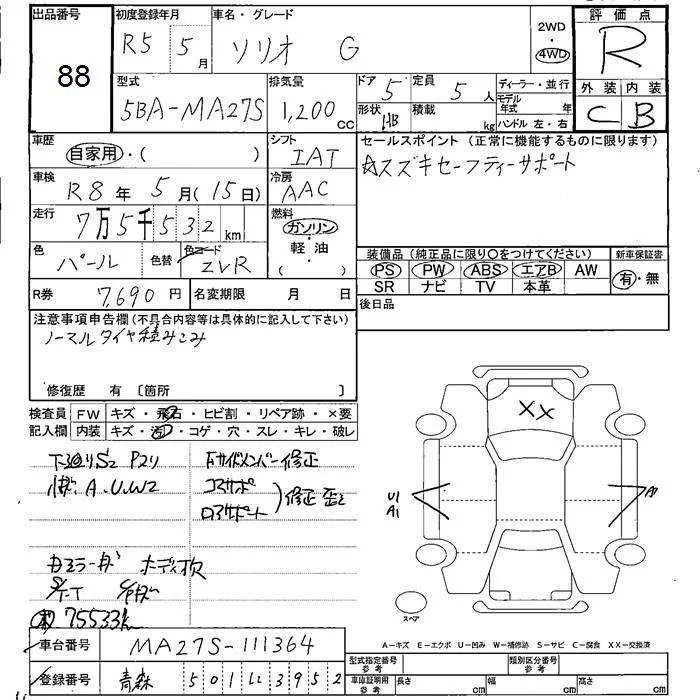 出品番号
88
初度登録年月
R5 5月
車名・グレード
ソリオ G
2WD
・
4WD
評価点
R
外装 内装
C B
型式
5BA-MA27S
排気量
1,200cc
ドア
5
定員
5人
形状
HB
積載
kg
ディーラー・並行
モデル年式 年
ハンドル 左・右
車歴
自家用・( )
シフト
IAT
車検
R8年5月(15日)
冷房
AAC
走行
7万5千532km
燃料
ガソリン
軽油
( )
色
パール
色替
色コード
ZVR
R券
7,690円
名変期限 月 日
セールスポイント(正常に機能するものに限ります)
☆スズキセーフティーサポート
装備品(純正品に限り○をつけてください)
新車保証書
PS PW ABS エアB AW
SR ナビ TV 本革
有・無
後日品
注意事項申告欄(不具合内容等は具体的に記入して下さい)
ノーマルタイヤ積みこみ
修復歴 有〔箇所 〕
検査員記入欄
FW キズ・飛石・ヒビ割・リペア跡・×要
内装 キズ・汚・コゲ・穴・スレ・キレ・破レ
下廻りS2 P2り
A.U.W2
右サイドメンバー修正
コアサポ
ロアサポート
修正 歪2
75533k
XX
U1
A1
A1
スペア
A-キズ E-エクボ U-凹み W-補修跡 S-サビ C-腐食 XX-交換済
車台番号
MA27S-111364
登録番号
青森 501 に 3952
型式指定番号
参考
類別区分番号
参考
車庫証明用
参考
長さ cm
幅 cm
高さ cm